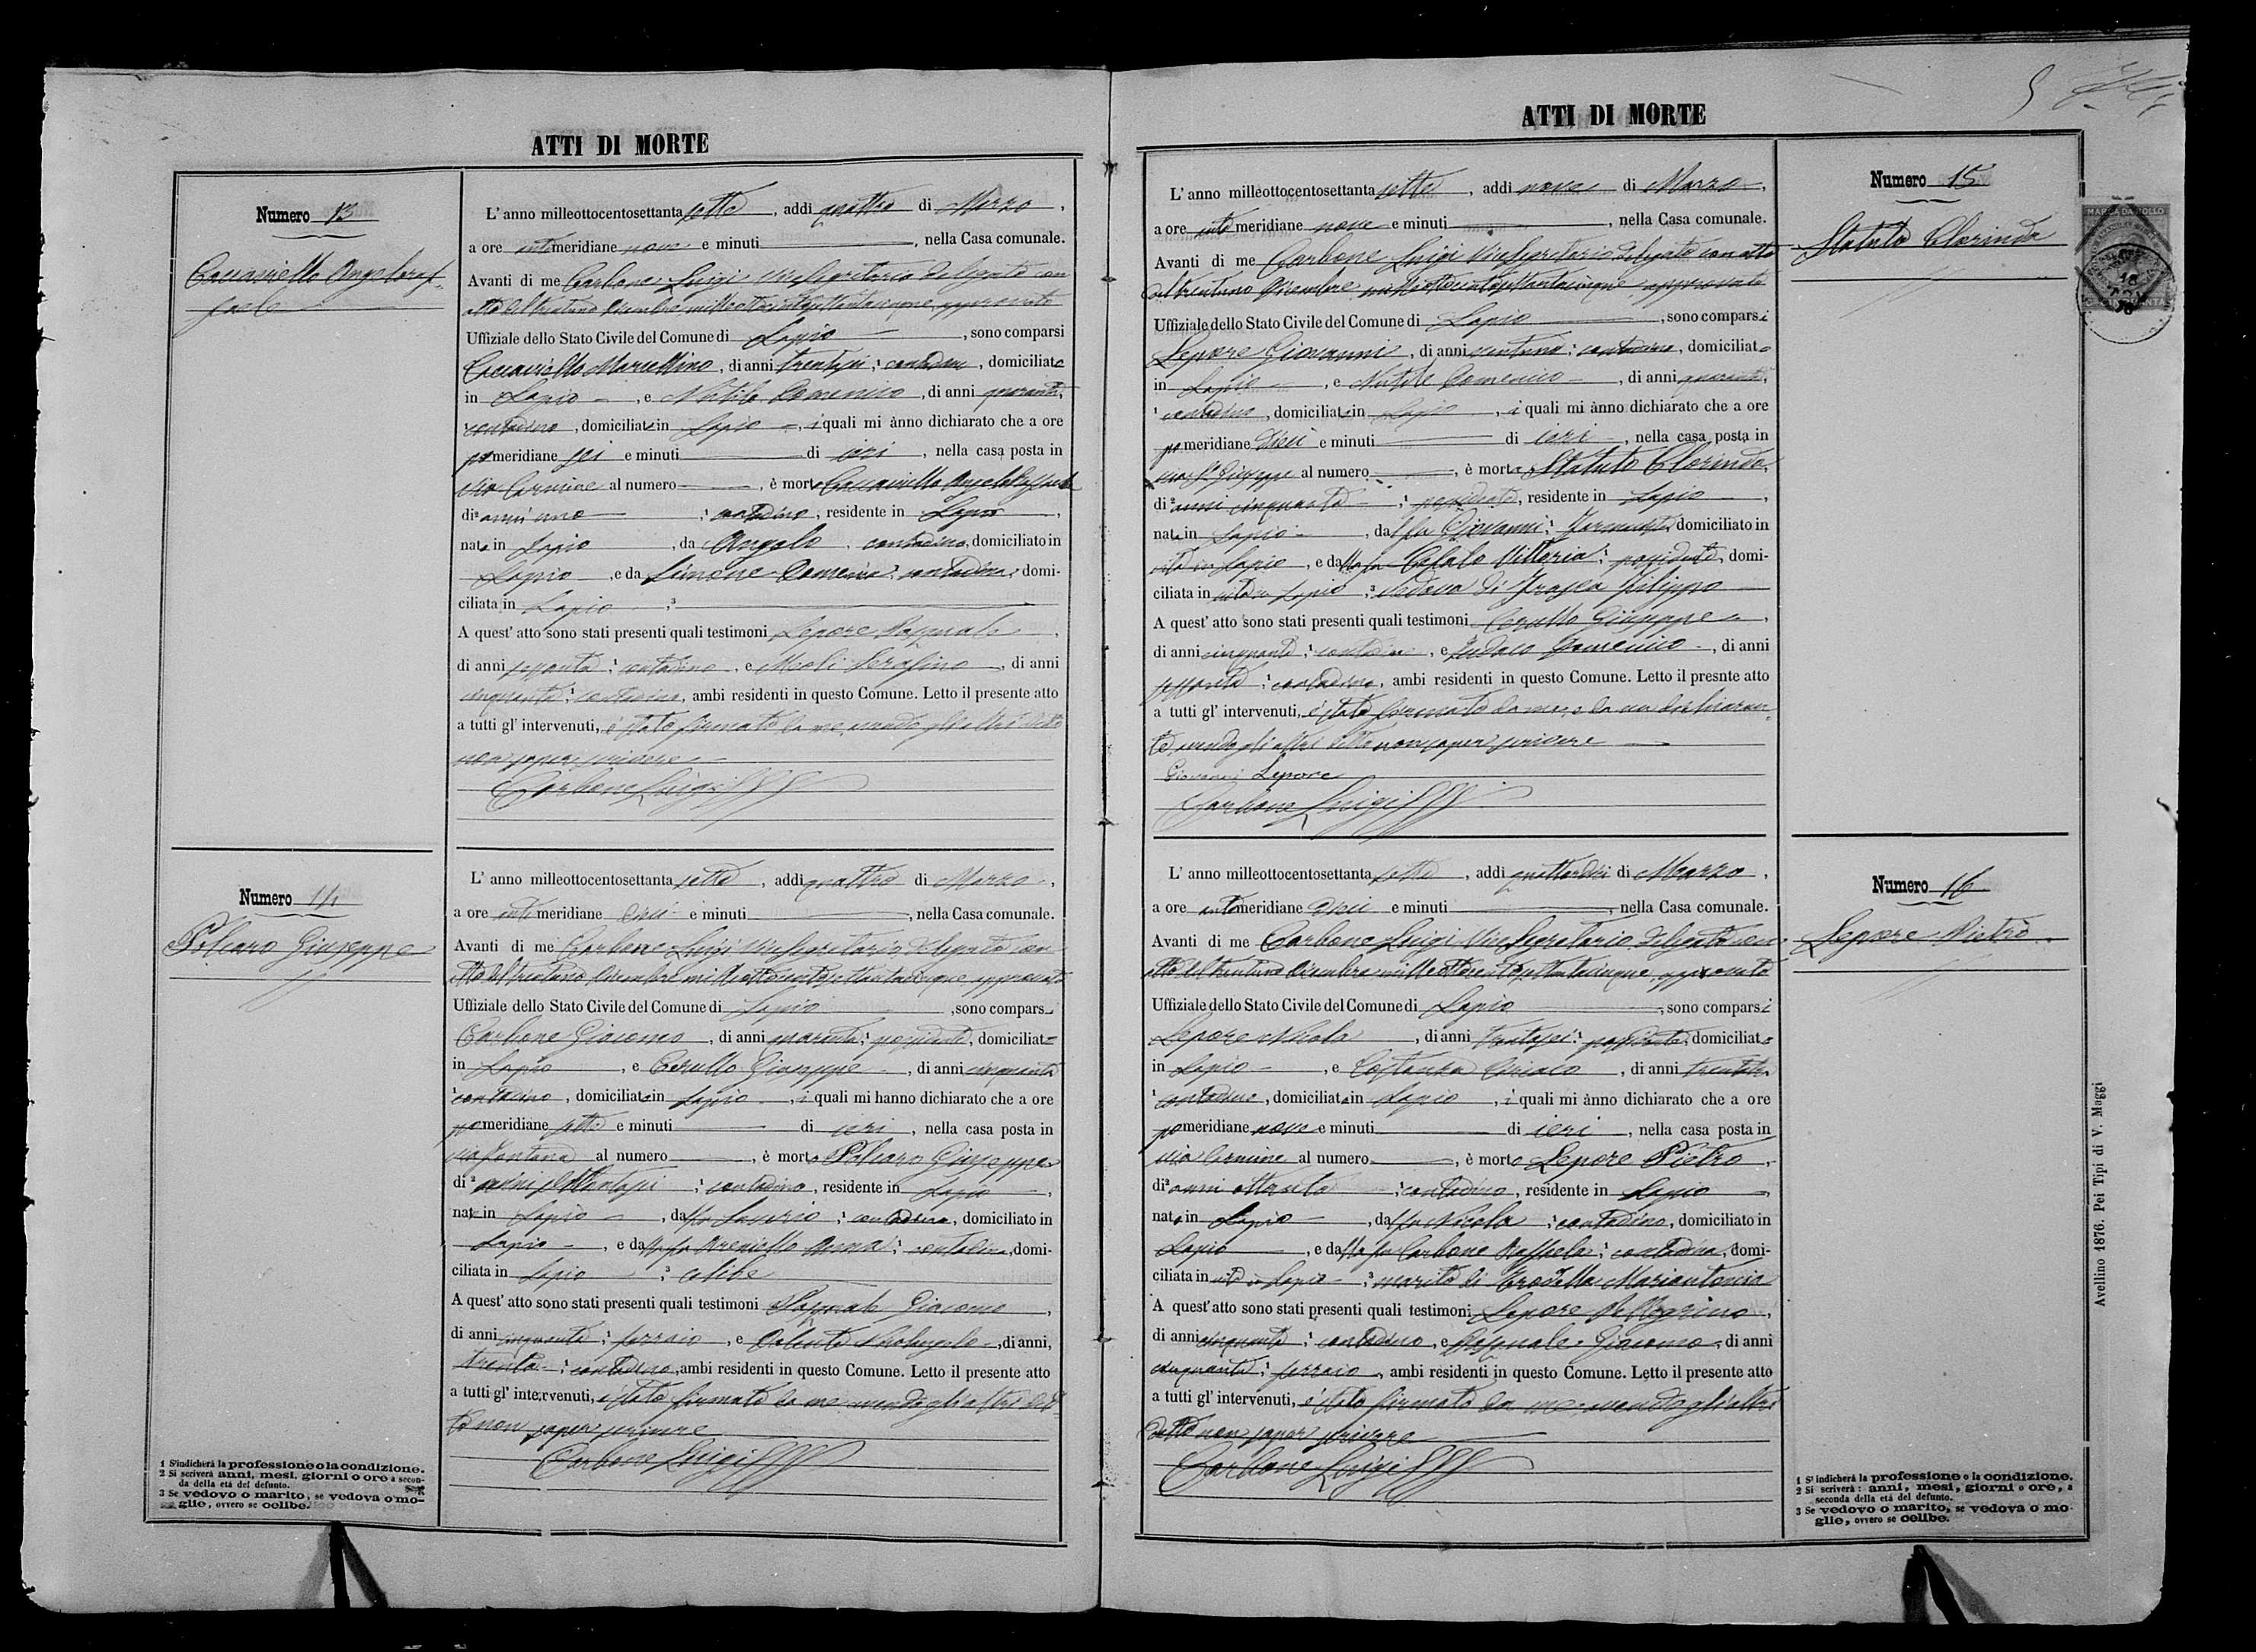 ATTI DI MORTE
Numero 13
Caccaviello Angeloraf-
faele
L' anno milleottocentosettanta sette, addì quattro di Marzo,
a ore antimeridiane nove e minuti, nella Casa comunale.
Avanti di me Carbone Luigi Vice Segretario delegato con
atto del trentuno Dicembre milleottocentosettantacinque approvato
Uffiziale dello Stato Civile del Comune di Lapio, sono comparsi
Caccaviello Marcellino, di anni trentasei, 1 contadino, domiciliato
in Lapio, e Nutile Domenico, di anni quaranta,
1 contadino, domiciliato in Lapio, i quali mi ànno dichiarato che a ore
pomeridiane sei e minuti di ieri, nella casa posta in
via Carmine al numero, è morto Caccaviello Angeloraffaele
di 2 anni uno 1 contadino, residente in Lapio,
nato in Lapio, da Angelo, contadino, domiciliato in
Lapio, e da Simone Domenica 1 contadina, domi-
ciliata in Lapio 3
A quest' atto sono stati presenti quali testimoni Lepore Pasquale,
di anni sessanta, 1 contadino, e Meoli Serafino, di anni
cinquanta, 1 contadino, ambi residenti in questo Comune. Letto il presente atto
a tutti gl' intervenuti, è stato firmato da me avendo gli altri detto
non saper scrivere
Carbone Luigi
Numero 14
Polcaro Giuseppe
L' anno milleottocentosettanta sette, addì quattro di Marzo,
a ore antimeridiane dieci e minuti, nella Casa comunale.
Avanti di me Carbone Luigi Vice Segretario delegato con
atto del trentuno Dicembre milleottocentosettantacinque approvato
Uffiziale dello Stato Civile del Comune di Lapio, sono comparsi
Carbone Giacomo, di anni quaranta, 1 possidente, domiciliato
in Lapio, e Cerullo Giuseppe, di anni cinquanta
1 contadino, domiciliato in Lapio, i quali mi hanno dichiarato che a ore
pomeridiane sette e minuti di ieri, nella casa posta in
via Fontana al numero, è morto Polcaro Giuseppe
di 2 anni settantasei, 1 contadino, residente in Lapio,
nato in Lapio, dal fu Saverio, 1 contadino, domiciliato in
Lapio, e dalla fu Anna, 1 contadina, domi-
ciliata in Lapio 3 celibe
A quest' atto sono stati presenti quali testimoni Pasquale Giacomo,
di anni cinquanta, 1 ferraio, e, di anni,
trenta, 1 contadino, ambi residenti in questo Comune. Letto il presente atto
a tutti gl' intervenuti, è stato firmato da me avendo gli altri det-
to non saper scrivere
Carbone Luigi
1 S'indicherà la professione o la condizione.
2 Si scriverà anni, mesi, giorni o ore a secon-
da della età del defunto.
3 Se vedovo o marito, se vedova o mo-
glie, ovvero se celibe.
ATTI DI MORTE
5
Numero 15
Statuto Clorinda
MARCA DA BOLLO
L' anno milleottocentosettanta sette, addì nove di Marzo,
a ore antimeridiane nove e minuti, nella Casa comunale.
Avanti di me Carbone Luigi Vice Segretario delegato con atto
del trentuno Dicembre milleottocentosettantacinque approvato
Uffiziale dello Stato Civile del Comune di Lapio, sono comparsi
Lepore Giovanni, di anni ventuno 1 contadino, domiciliato
in Lapio, e Nutile Domenico, di anni quaranta,
1 contadino, domiciliato in Lapio, i quali mi ànno dichiarato che a ore
pomeridiane dieci e minuti di ieri, nella casa posta in
via S. Giuseppe al numero, è morta Statuto Clorinda,
di 2 anni cinquanta, 1 possidente, residente in Lapio,
nata in Lapio, dal fu Giovanni 1 farmacista, domiciliato in
vita in Lapio, e dalla fu Cefalo Vittoria 1 possidente, domi-
ciliata in vita in Lapio, 3 vedova di Frasca Filippo
A quest' atto sono stati presenti quali testimoni Cerullo Giuseppe,
di anni cinquanta, 1 contadino, e Domenico, di anni
sessanta, 1 contadino, ambi residenti in questo Comune. Letto il presnte atto
a tutti gl' intervenuti, è stato firmato da me, e da un dichiaran-
te avendo gli altri detto non saper scrivere
Giovanni Lepore
Carbone Luigi
Numero 16
Lepore Pietro
L' anno milleottocentosettanta sette, addì quattordici di Marzo,
a ore antimeridiane dieci e minuti, nella Casa comunale.
Avanti di me Carbone Luigi Vice Segretario delegato con
atto del trentuno Dicembre milleottocentosettantacinque approvato
Uffiziale dello Stato Civile del Comune di Lapio, sono comparsi
Lepore Nicola, di anni trentasei 1 possidente, domiciliato
in Lapio, e Costanza Ciriaco, di anni trentatre
1 contadino, domiciliato in Lapio, i quali mi ànno dichiarato che a ore
pomeridiane nove e minuti di ieri, nella casa posta in
via Carmine al numero, è morto Lepore Pietro,
di 2 anni ottanta 1 contadino, residente in Lapio,
nato in Lapio, dal fu Nicola, 1 contadino, domiciliato in
Lapio, e dalla fu Carbone Raffaela, 1 contadina, domi-
ciliata in vita in Lapio 3 marito di Trodella Mariantonia
A quest' atto sono stati presenti quali testimoni Lepore Pellegrino,
di anni cinquanta, 1 contadino, e Pasquale Giacomo, di anni
cinquanta, 1 ferraio, ambi residenti in questo Comune. Letto il presente atto
a tutti gl' intervenuti, è stato firmato da me avendo gli altri
detto non saper scrivere
Carbone Luigi
1 S' indicherà la professione o la condizione.
2 Si scriverà: anni, mesi, giorni o ore, a
seconda della età del defunto.
3 Se vedovo o marito, se vedova o mo-
glie, ovvero se celibe.
Avellino 1876. Pei Tipi di V. Maggi